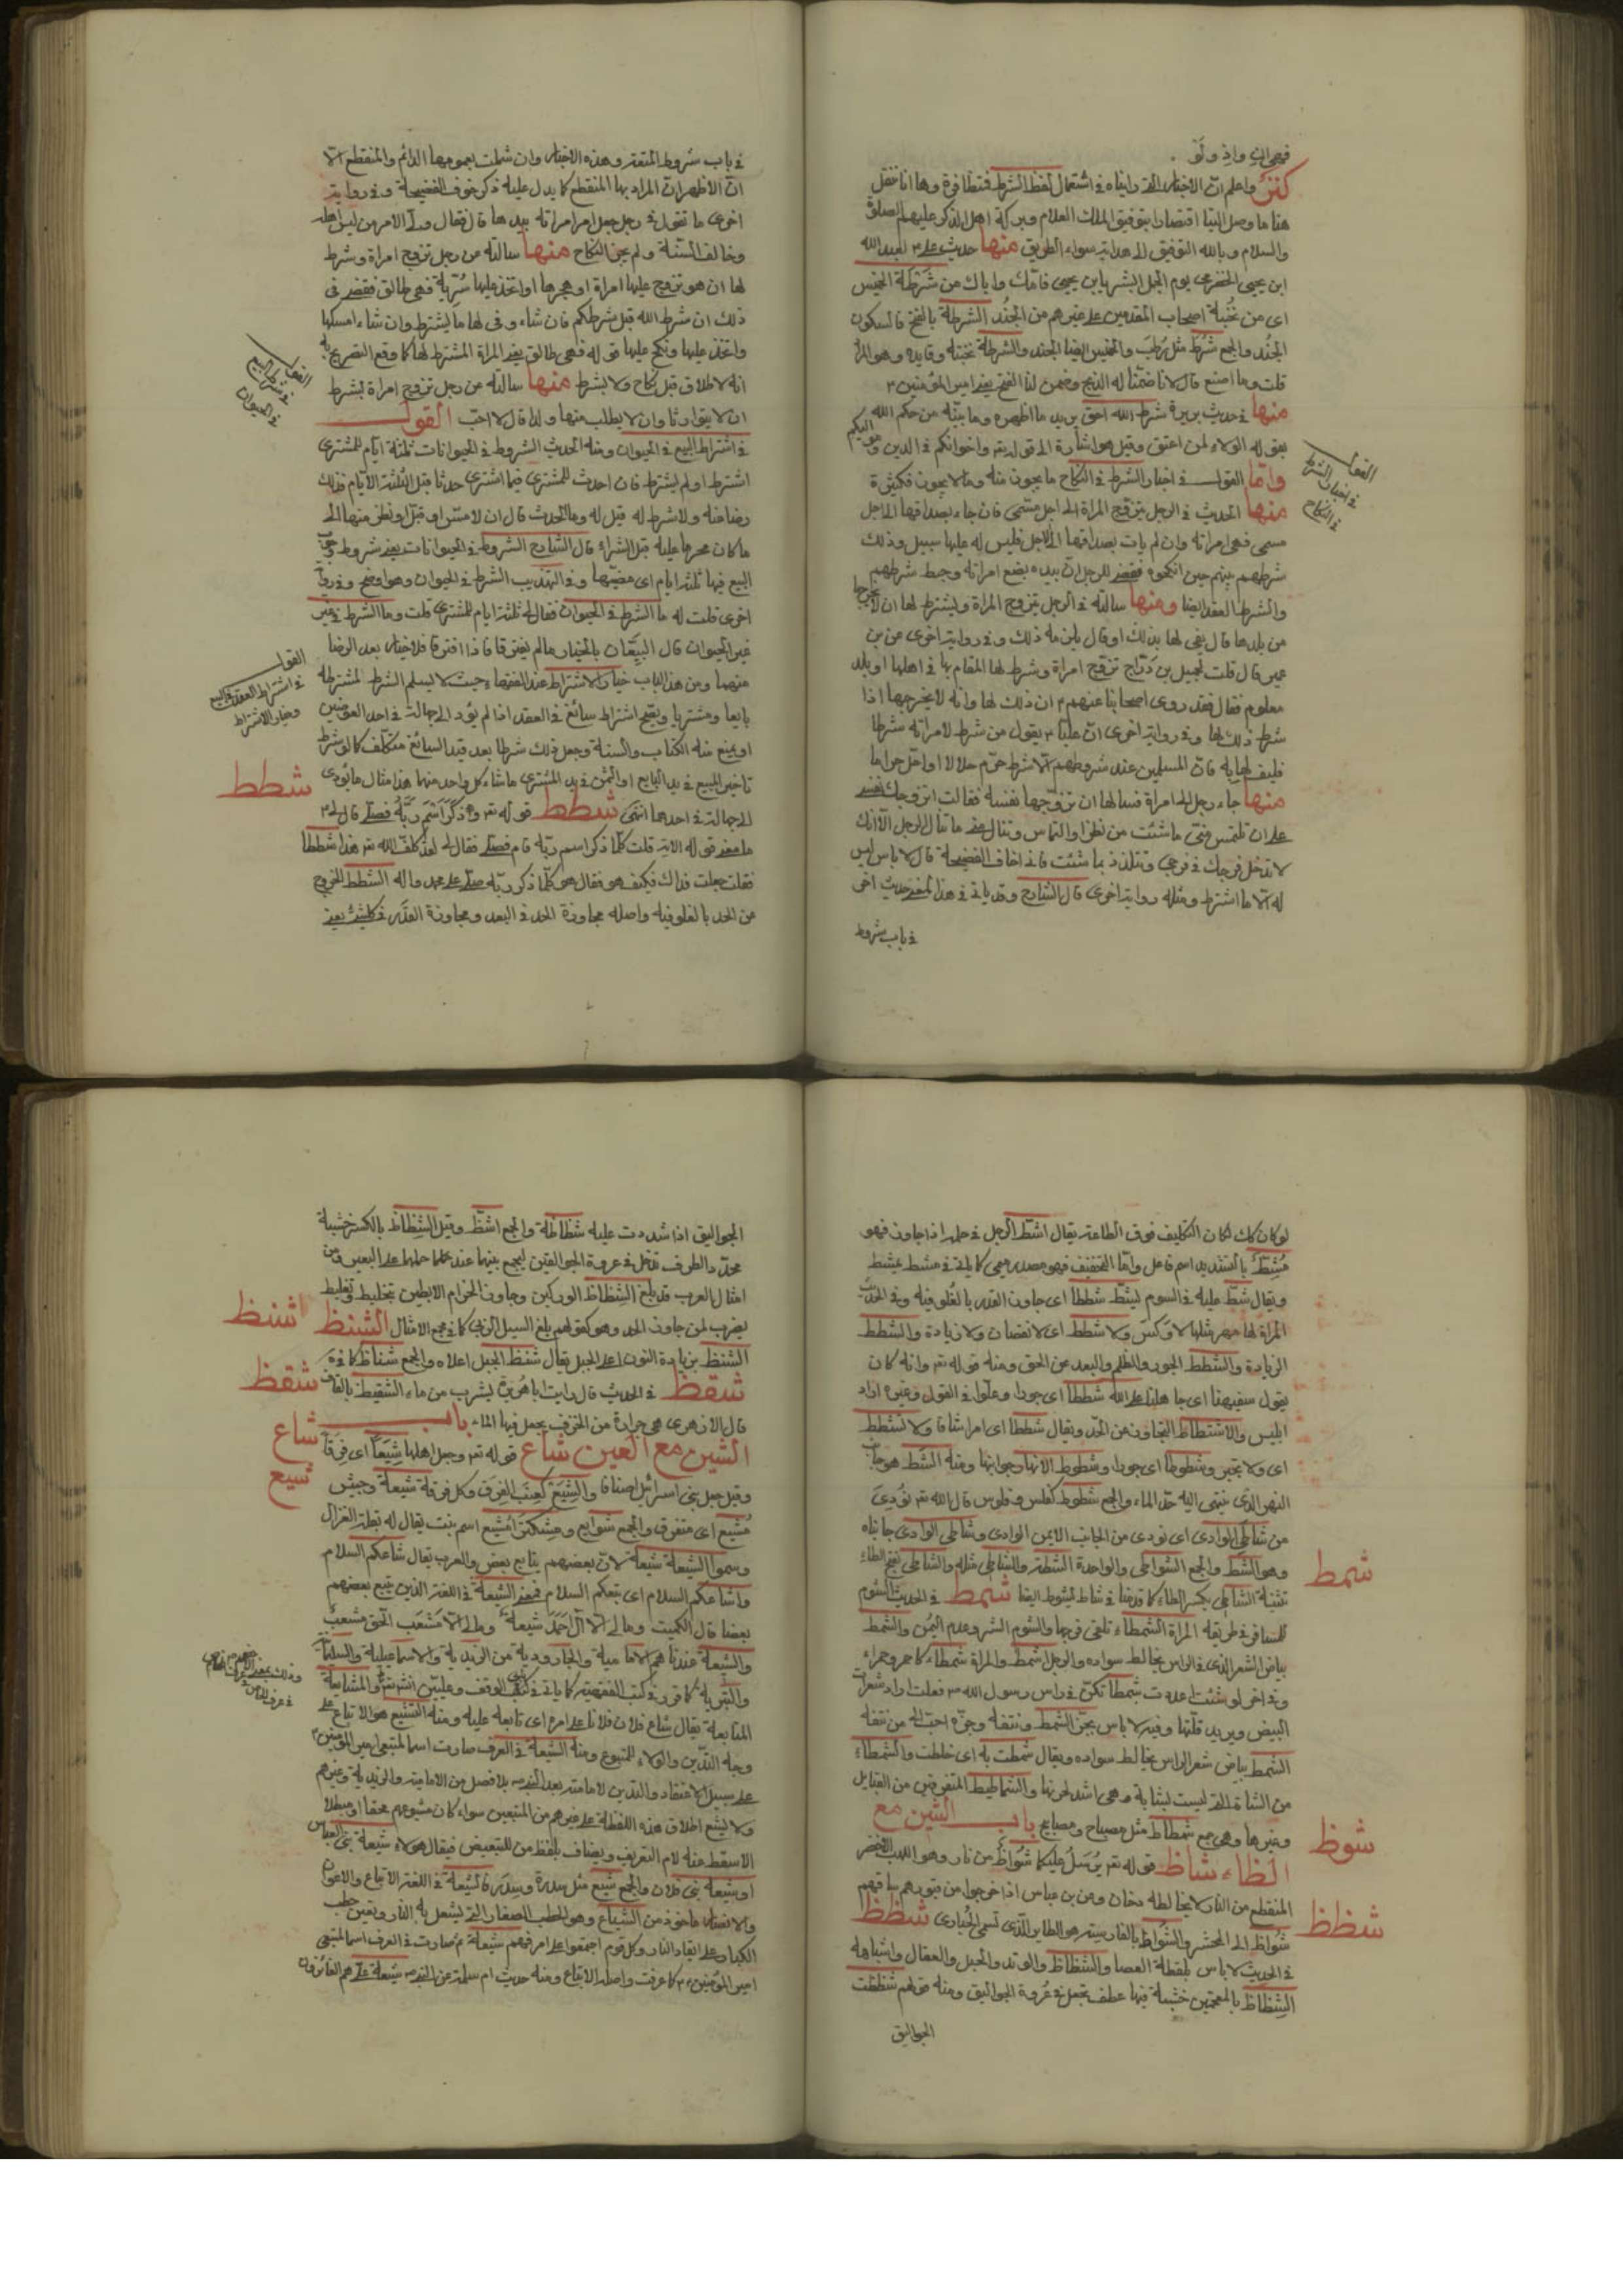 فهي إن واذ ولو
كنز واعلم ان الاخبار التي راينا في اشتمال لفظ الشرط فمتظافرة وها انا ننقل
هنا ما وصل الينا اقتصارا بتوفيق الملك العلام وبركة اهل الذكر عليهم الصلوة
والسلام وبالله التوفيق الى هداية سواء الطريق منها حديث علي ع لعبد الله
ابن يحيى الحضرمي يوم الجمل ابشر يابن يحيى فانك واباك من شرطة الخميس
اى من نخبة اصحاب المقدمين على غيرهم من الجند الشرطة بالضم فالسكون
الجند والجمع شرط مثل رطب والخميس ايضا الجند والشرطة نخبته وقايده وهو المراد
قلت وما اصنع قال لانا ضمنا له الذبح وضمن لنا الفتح يعنى امير المؤمنين ع
منها في حديث بريرة شرط الله احق يريد ما اظهره وما بينه من حكم الله
بقوله الولاء لمن اعتق وقيل هو اشارة الى قوله تعالى واخوانكم في الدين ومواليكم
القول في اخبار الشرط في النكاح
واما القول في اخبار الشرط في النكاح ما يجوز منه وما لا يجوز فكثيرة
منها الحديث في الرجل يتزوج المراة الى اجل مسمى فان جاء بصداقها الى اجل
مسمى فهى امراته وان لم يات بصداقها الى الاجل فليس له عليها سبيل وذلك
شرطهم بينهم حين انكحوه فقضى للرجل ان بيده بضع امراته وحبط شرطهم
والشرط العقد ايضا ومنها سالته في الرجل يتزوج المراة ويشترط لها ان لا يخرجها
من بلدها قال يفى لها بذلك او قال يلزمه ذلك وفي رواية اخرى عن بن
عمير قال قلت لجميل بن دراج تزوج امراة وشرط لها المقام بها في اهلها او بلد
معلوم فقال فقد روى اصحابنا عنهم ع ان ذلك لها وانه لا يخرجها اذا
شرط ذلك لها وفي رواية اخرى ان عليا ع يقول من شرط لامراته شرطا
فليف لها به فان المسلمين عند شروطهم الا شرط حرم حلالا او احل حراما
منها جاء رجل الى امراة فسالها ان تزوجها نفسه فقالت ازوجك نفسى
على ان تلتمس منى ما شئت من نظر او التماس وتنال منى ما ينال الرجل الا انك
لا تدخل فرجك في فرجي وتتلذذ بما شئت فانى اخاف الفضيحة قال لا باس ليس
له الا ما اشترط ومثله رواية اخرى قال الشارح وقد ياتى في هذا المعنى حديث اخر
في باب شروط
في باب شروط المتعة وهذه الاخبار وان شملت بعمومها الدائم والمنقطع الا
ان الاظهر ان المراد بها المنقطع كما يدل عليه ذكر خوف الفضيحة وفي رواية
اخرى ما تقول في رجل جعل امر امراته بيدها قال فقال ولى الامر من ليس اهله
وخالف السنة ولم يجز النكاح منها سالته عن رجل تزوج امراة وشرط
لها ان هو تزوج عليها امراة او هجرها او اتخذ عليها سرية فهى طالق فقضى في
ذلك ان شرط الله قبل شرطكم فان شاء وفى لها ما يشترط وان شاء امسكها
واتخذ عليها ونكح عليها قوله فهى طالق يعنى المراة المشترط لها كما وقع التصريح به
القول في شرط البيع في الحيوان
انه لا طلاق قبل نكاح ولا بشرط منها سالته عن رجل تزوج امراة بشرط
ان لا يتوارثا وان لا يطلب منها ولدا قال لا احب القول
في اشتراط البيع في الحيوان ومنه الحديث الشروط في الحيوانات ثلثة ايام للمشترى
اشترط او لم يشترط فان احدث المشترى فيما اشترى حدثا قبل الثلثة الايام فذلك
رضا منه ولا شرط له قيل له وما الحدث قال ان لامس او قبل او نظر منها الى
ما كان محرما عليه قبل الشراء قال الشارح الشروط في الحيوانات يعنى شروط وجوب
البيع فيها ثلثة ايام اى مضيها وفي التهذيب الشرط في الحيوان وهو اوضح وفي رواية
اخرى قلت له ما الشرط في الحيوان فقال لى ثلثة ايام للمشترى قلت وما الشرط في غير
غير الحيوان قال البيعان بالخيار ما لم يفترقا فاذا افترقا فلا خيار بعد الرضا
القول في اشتراط العقد في البيع وخيار الاشتراط
منهما ومن هذا الباب خيار الاشتراط عند الفقهاء حيث لا يسلم الشرط لمشترطه
بايعا ومشتريا ويصح اشتراط سائغ في العقد اذا لم يؤد الى جهالة في احد العوضين
او يمنع منه الكتاب والسنة وجعل ذلك شرطا بعد قيد السائغ متكلف كما لو شرط
شطط
تاخير المبيع في يد البايع او الثمن في يد المشترى ما شاء كل واحد منهما هذا مثال ما يؤدى
الى جهالة في احدهما انتهى شطط قوله تعالى وذكر اسم ربه فصلى قال لى ع
ما معنى قوله الاية قلت كلما ذكر اسم ربه قام فصلى فقال لى لقد كلف الله تعالى هذا شططا
فقلت جعلت فداك فكيف هو فقال هو كلما ذكر ربه صلى على محمد واله الشطط الخروج
عن الحد بالغلو فيه واصله مجاوزة الحد في البعد ومجاوزة القدر في كل شئ يعنى
لو كان كك لكان التكليف فوق الطاقة يقال اشتط الرجل في حلمه اذا جاوز فهو
مشتط بالتشديد اسم فاعل واما التخفيف فهو مصدر ميمى كما ياتى في مشط يمشط
ويقال شط عليه في السوم يشط شططا اى جاوز القدر بالغلو فيه وفي الحديث
المراة لها مهر مثلها لا وكس ولا شطط اى لا نقصان ولا زيادة والشطط
الزيادة والشطط الجور والظلم والبعد عن الحق ومنه قوله تعالى وانه كان
يقول سفيهنا اى جاهلنا على الله شططا اى جورا وعلوا في القول وغيره اراد
ابليس والاشتطاط التجاوز عن الحد ويقال شططا اى امرا شاقا ولا تشطط
اى ولا تجر وشطوطا اى جورا وشطوط الانهار جوانبها ومنه الشط هو جانب
النهر الذى ينتهى اليه حد الماء والجمع شطوط كفلس وفلوس قال الله تعالى نودى
من شاطئ الوادى اى نودى من الجانب الايمن الوادى وشاطى الوادى جانباه
شمط
وهو الشط والجمع الشواطى والواحدة الشطة والشاطى مثله والشاطى بفتح الطاء
تثنية الشاطى بكسر الطاء كما قدمنا في شاط يشوط ايضا شمط في الحديث الشوم
للمسافر في طريقه المراة الشمطاء تلقى فرجها والشوم الشر وعدم اليمن والشمط
بياض الشعر الذى في الراس يخالط سواده والرجل اشمط والمراة شمطاء كاحمر وحمراء
وفي اخر لو شئت اعد شمطا تكن في راس رسول الله ص فعلت اراد شعرات
البيض ويريد قلتها وفيه لا باس بجز الشمط ونتفه وجزه احب الى من نتفه
الشمط بياض شعر الراس يخالط سواده ويقال شمطت به اى خلطت والشمطاء
من الشاة التى ليست بشابة وهى اشد لحزنها والشماطيط المتفرقين من القبايل
شوظ
وغيرها وهى جمع شمطاط مثل مصباح ومصابيح باب الشين مع
الظاء شاظ قوله تعالى يرسل عليكما شواظ من نار وهو اللهب الاخضر
المنقطع من النار لا يخالطه دخان وعن بن عباس اذا خرجوا من قبورهم ساقهم
شظظ
شواظ الى المحشر والشواظ بالفارسية هو الطاير الذى تسمى الحبارى شظظ
في الحديث لا باس بلقطة العصا والشظاظ والوتد والحبل والعقال واشباهه
الشظاظ بالمعجمتين خشبة فيها عطف تجعل في عروة الجواليق ومنه قولهم شظظت
الجواليق
الجواليق اذا شددت عليه شظاظه والجمع اشظة وقيل الشظاظ بالكسر خشبة
محدد الطرف تدخل في عروة الجوالقين ليجمع بينهما عند حملهما على البعير ومن
امثال العرب قد بلغ الشظاظ الوركين وجاوز الحزام الابطين بتخليط وتغليط
شنظ
يضرب لمن جاوز الحد وهو كقولهم بلغ السيل الزبى كما في مجمع الامثال الشنظ
الشنظ بزيادة النون اعلى الجبل يقال شنظ الجبل اعلاه والجمع شناظ كما في ق
شقظ
شقظ في الحديث قال رايت ابا هريرة يشرب من ماء الشقيظ بالقاف
قال الازهرى هى جرارة من الخزف يجعل فيها الماء باب
شاع
الشين مع العين شاع قوله تعالى وجعل اهلها شيعا اى فرقا
شيع
وقيل جعل بنى اسرائيل اصنافا والشيع كعنب الفرق وكل فرقة شيعة وجيش
مشيع اى متفرق والجمع شوايع ومشكن امشيع اسم بنت يقال له بقلة الغزال
وسموا الشيعة شيعة لان بعضهم يتابع بعض والعرب يقال شاعكم السلام
واشاعكم السلام اى تبعكم السلام فمعنى الشيعة في اللغة الذين يتبع بعضهم
بعضا قال الكميت وما لى الا ال احمد شيعة وما لى الا مشعب الحق مشعب
والشيعة عندنا هم الامامية والجارودية من الزيدية والاسماعيلية والسليمانية
والبترية كما قرر في كتب الفقهية كما ياتى في كتاب الوقف وعليين والمشايعة
المتابعة يقال شاع فلان فلانا على امره اى تابعه عليه ومنه التشيع هو الاتباع على
وجه التدين والولاء للمتبوع ومنه الشيعة في العرف صارت اسما لمتبعى امير المؤمنين ع
على سبيل الاعتقاد والتدين لامامته بعد النبي ص بلا فصل من الامامية والزيدية وغيرهم
ولا يشع اطلاق هذه اللفظة على غيرهم من المتبعين سواء كان متبوعهم محقا او مبطلا
الا بسقط عنه لام التعريف ويضاف بلفظ من للتبعيض فيقال هولاء شيعة بنى العباس
او شيعة بنى فلان والجمع شيع مثل سدرة وسدر فالشيعة في اللغة الاتباع والاعوان
والانصار ماخوذ من الشياع وهو الحطب الصغار التى يشعل به النار وتعين حطب
الكبار على ايقاد النار وكل قوم اجمعوا على امر فهم شيعة ثم صارت في العرف اسما لمتبعى
امير المؤمنين ع كما عرفت واصله الاتباع ومنه حديث ام سلمة عن النبي ص شيعة على هم الفائزون